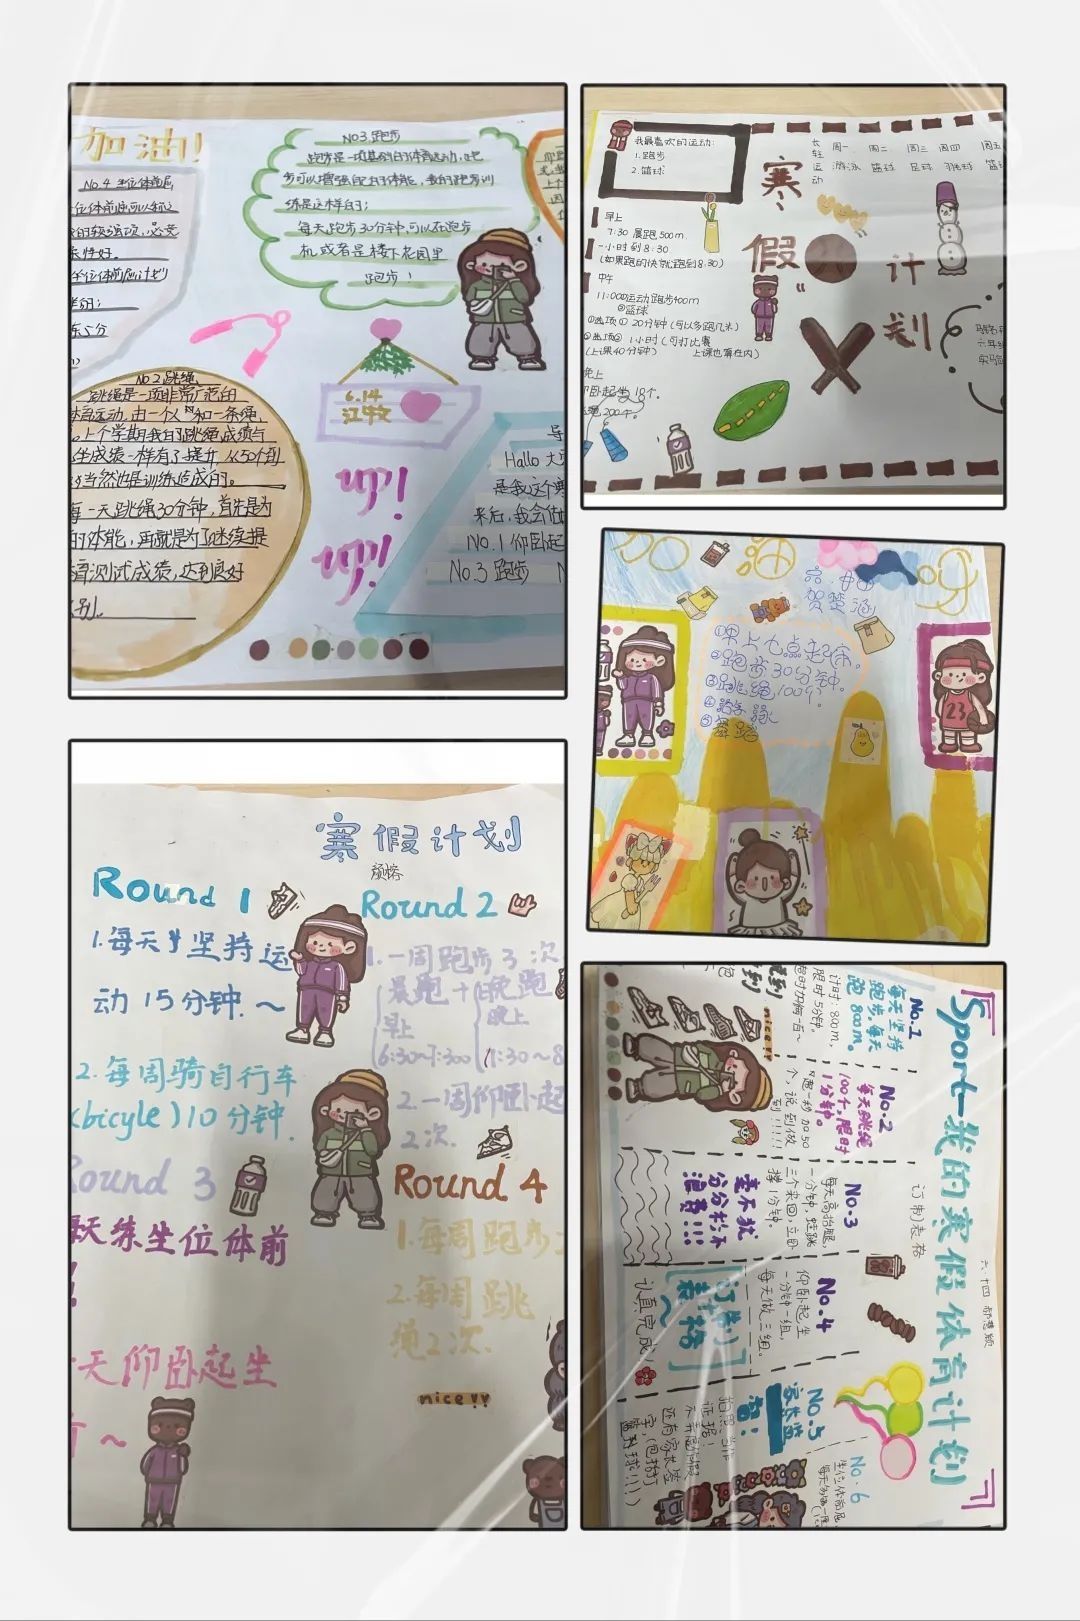 加油!
No.4 坐位体前屈
No3 跑步
跑步是一项基础的体育运动,跑
步可以增强自己的体能,我的跑步训
练是这样的:
每天跑步30分钟,可以在跑步
机或者是楼下花园里
跑步!
No.2 跳绳
跳绳是一项非常广范的
体育运动,由一个人和一条绳
上个学期我的跳绳成绩与
坐成绩一样有了提升,从50个到
当然也是训练造成的。
每一天跳绳30分钟,首先是为
的体能,再就是为了继续提
测试成绩,达到良好
6.14
up!
up!
导
Hallo 大
是我这个寒
来后,我会
NO.1 仰卧起
No.3 跑步
我最喜欢的运动:
1.跑步
2.篮球
寒
假
计
划
周一 周二 周三 周四 周五
游泳 篮球 足球 羽毛球 篮
早上
7:30 晨跑500m.
一小时到8:30
(如果跑的快就跑到8:30)
中午
11:00运动跑步400m
②篮球
①选项① 20分钟(可以多跑几米)
②选项② 1小时(可打比赛
(上课40分钟) 上课也算在内)
晚上
仰卧起坐18个。
绳200个。
六年级
实验
加油
贺楚涵
①早上七点起床。
②跑步30分钟。
③跳绳100个。
23
寒假计划
Round 1
1.每天坚持运
动15分钟.~
2.每周骑自行车
(bicyle)10分钟.
Round 2
1.一周跑步3次
晨跑+晚跑
早上
晚上
2.一周仰卧起
2次.
Round 3
天练坐位体前
天仰卧起坐
Round 4
1.每周跑步
2.每周跳
绳2次.
nice!!
Sport—我的寒假体育计划
订制表格
六·十四 郝慧颖
No.1
每天坚持
跑步,每天
跑800m。
计时:800m,
限时5分钟。
nice!!
No.2
每天跳绳
100个,限时
1分钟。
个,说到做
到!!!!!
No.3
每天高抬腿,
一分钟,蛙跳
三个来回,立卧
撑1分钟
毫不犹
分分秒秒不
浪费!!!
No.4
仰卧起坐
一分钟一组,
每天做三组。
订制
表格
认真完成!
NO.5
家长监
督:
拍照当作
证据!
还有家长签
字,(包括打
篮球!!!)
No.6
坐位体前屈,